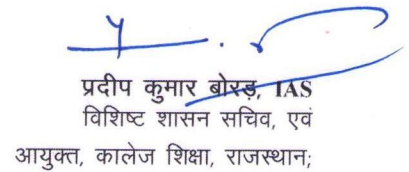 प्रदीप कुमार बोरड़, IAS
विशिष्ट शासन सचिव, एवं
आयुक्त, कालेज शिक्षा, राजस्थान;